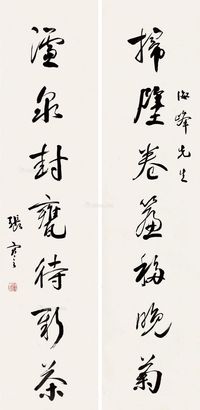 掃壁卷簾移晚菊
海峰先生
濾泉封甕待新茶
張謇